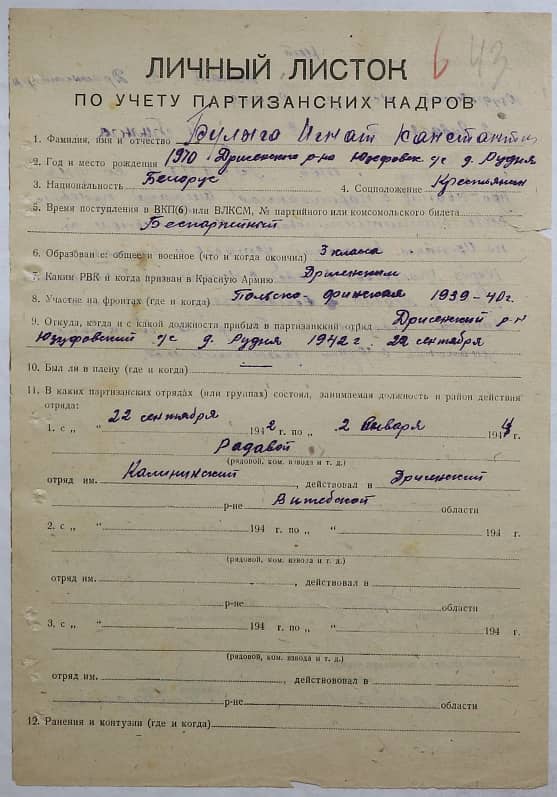 6 43
ЛИЧНЫЙ ЛИСТОК
ПО УЧЕТУ ПАРТИЗАНСКИХ КАДРОВ
1. Фамилия, имя и отчество Булыго Игнат Канстанти
2. Год и место рождения 1910 Дрисенского р-на Юзефовск с/с д. Рудня
3. Национальность Белорус 4. Соцположение Крестьянин
5. Время поступления в ВКП(б) или ВЛКСМ, № партийного или комсомольского билета
Беспартийный
6. Образование: общее и военное (что и когда окончил) 3 класса
7. Каким РВК и когда призван в Красную Армию Дрисенским
8. Участие на фронтах (где и когда) Польско-финская 1939-40 г.
9. Откуда, когда и с какой должности прибыл в партизанский отряд Дрисенский р-н
Юзуфовский с/с д. Рудня 1942 г. 22 сентября
10. Был ли в плену (где и когда) —
11. В каких партизанских отрядах (или группах) состоял, занимаемая должность и район действия
отряда:
1. с „ 22 сентября 1942 г. по „ 2 Января 1944 г.
Радавой
(рядовой, ком. взвода и т. д.)
отряд им. Калининский, действовал в Дрисенский
р-не Витебской области
2. с „ “ 194 г. по „ “ 194 г.
(рядовой, ком. взвода и т. д.)
отряд им. , действовал в
р-не области
3. с „ “ 194 г. по „ “ 194 г.
(рядовой, ком. взвода и т. д.)
отряд им. , действововал в
р-не области
12. Ранения и контузии (где и когда)